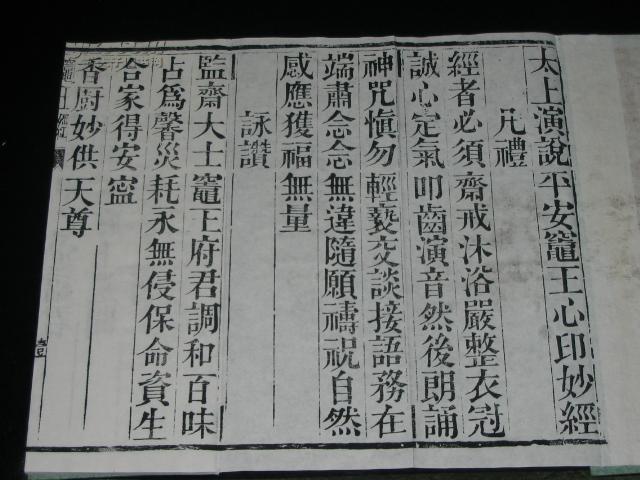 太上演說平安竈王心印妙經
凡禮
經者必須齋戒沐浴嚴整衣冠
誠心定氣叩齒演音然後朗誦
神咒慎勿輕褻交談接語務在
端肅念念無違隨願禱祝自然
感應獲福無量
詠讚
監齋大士竈王府君調和百味
占為馨災耗永無侵保命資生
合家得安寍
香厨妙供天尊